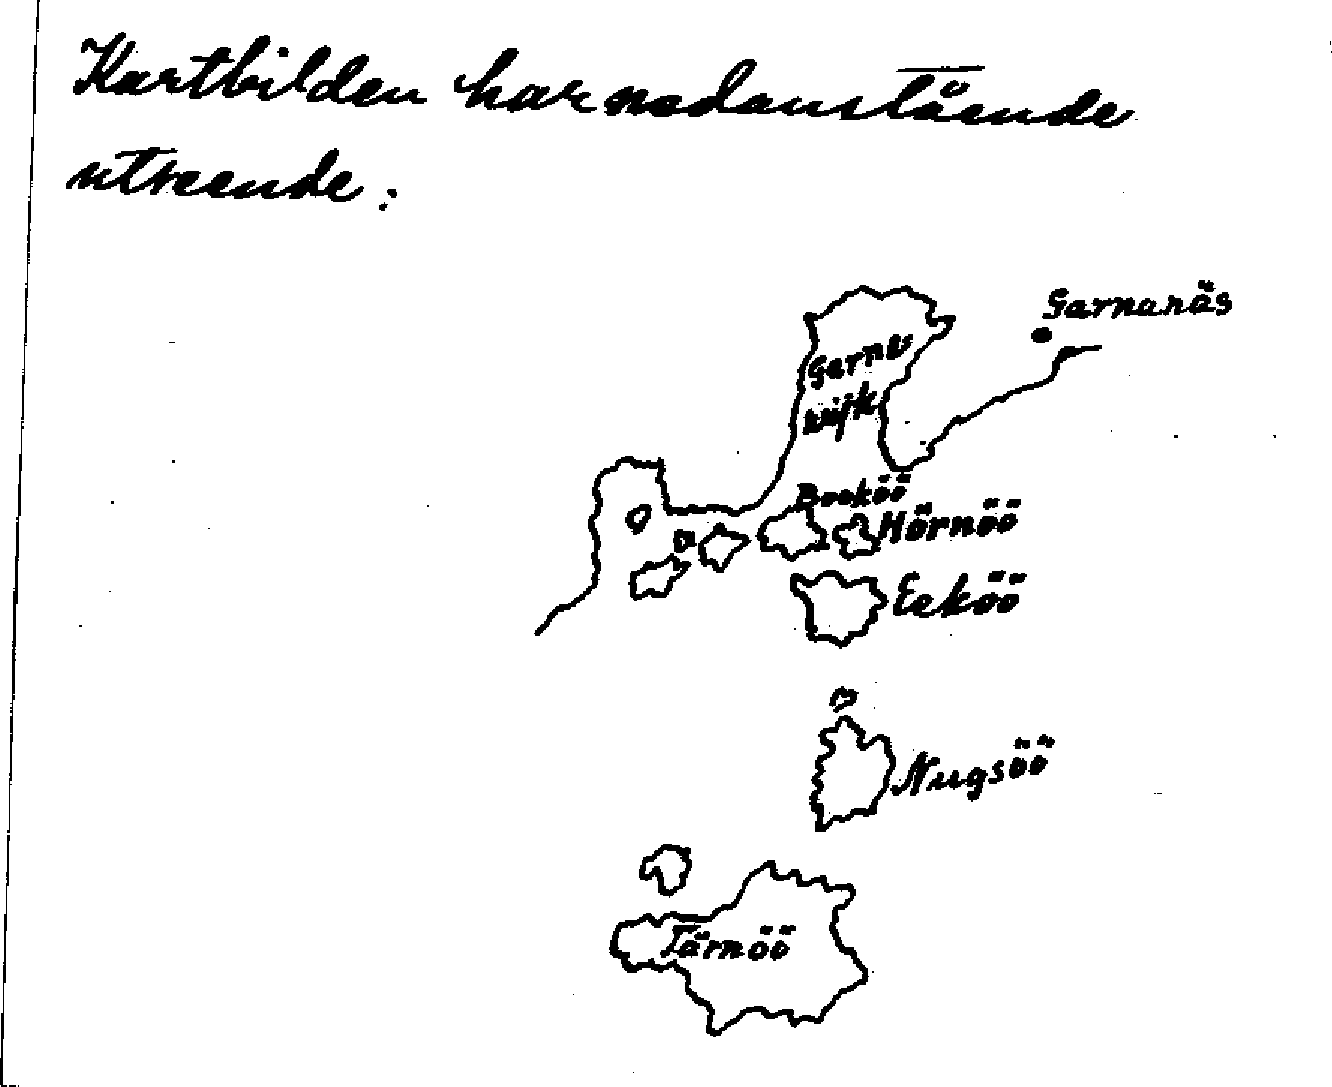 Kartbilden har nedanstående
utseende:
Garnanäs
Garnu
wijk
Boeköö
Hörnöö
Eeköö
Nugsöö
Tärnöö